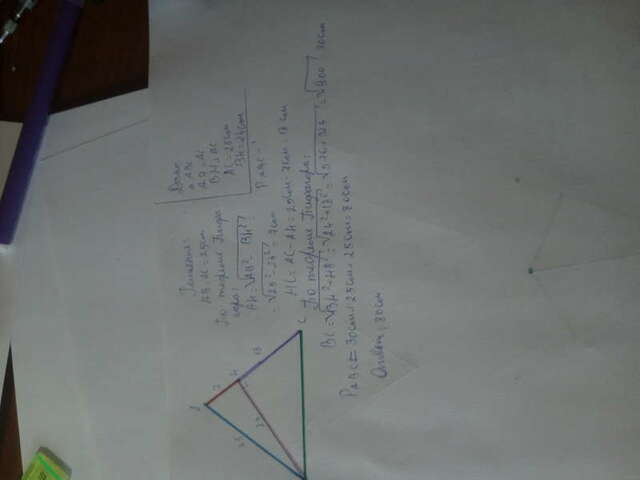 Дано
△ABC
AB=AC
BH⊥AC
AC=25см
BH=24см
P△ABC-?
Решение:
AB=AC=25см
По теореме Пифа
гора:
AH=√AB²-BH²
=√25²-24²=7см
HC=AC-AH=25см-7см=18см
По теореме Пифагора:
BC=√BH²+HB²=√24²+18²=√576+324=√900 30см
P△ABC=30см+25см+25см=80см
Ответ: 80см
7
H
18
C
25